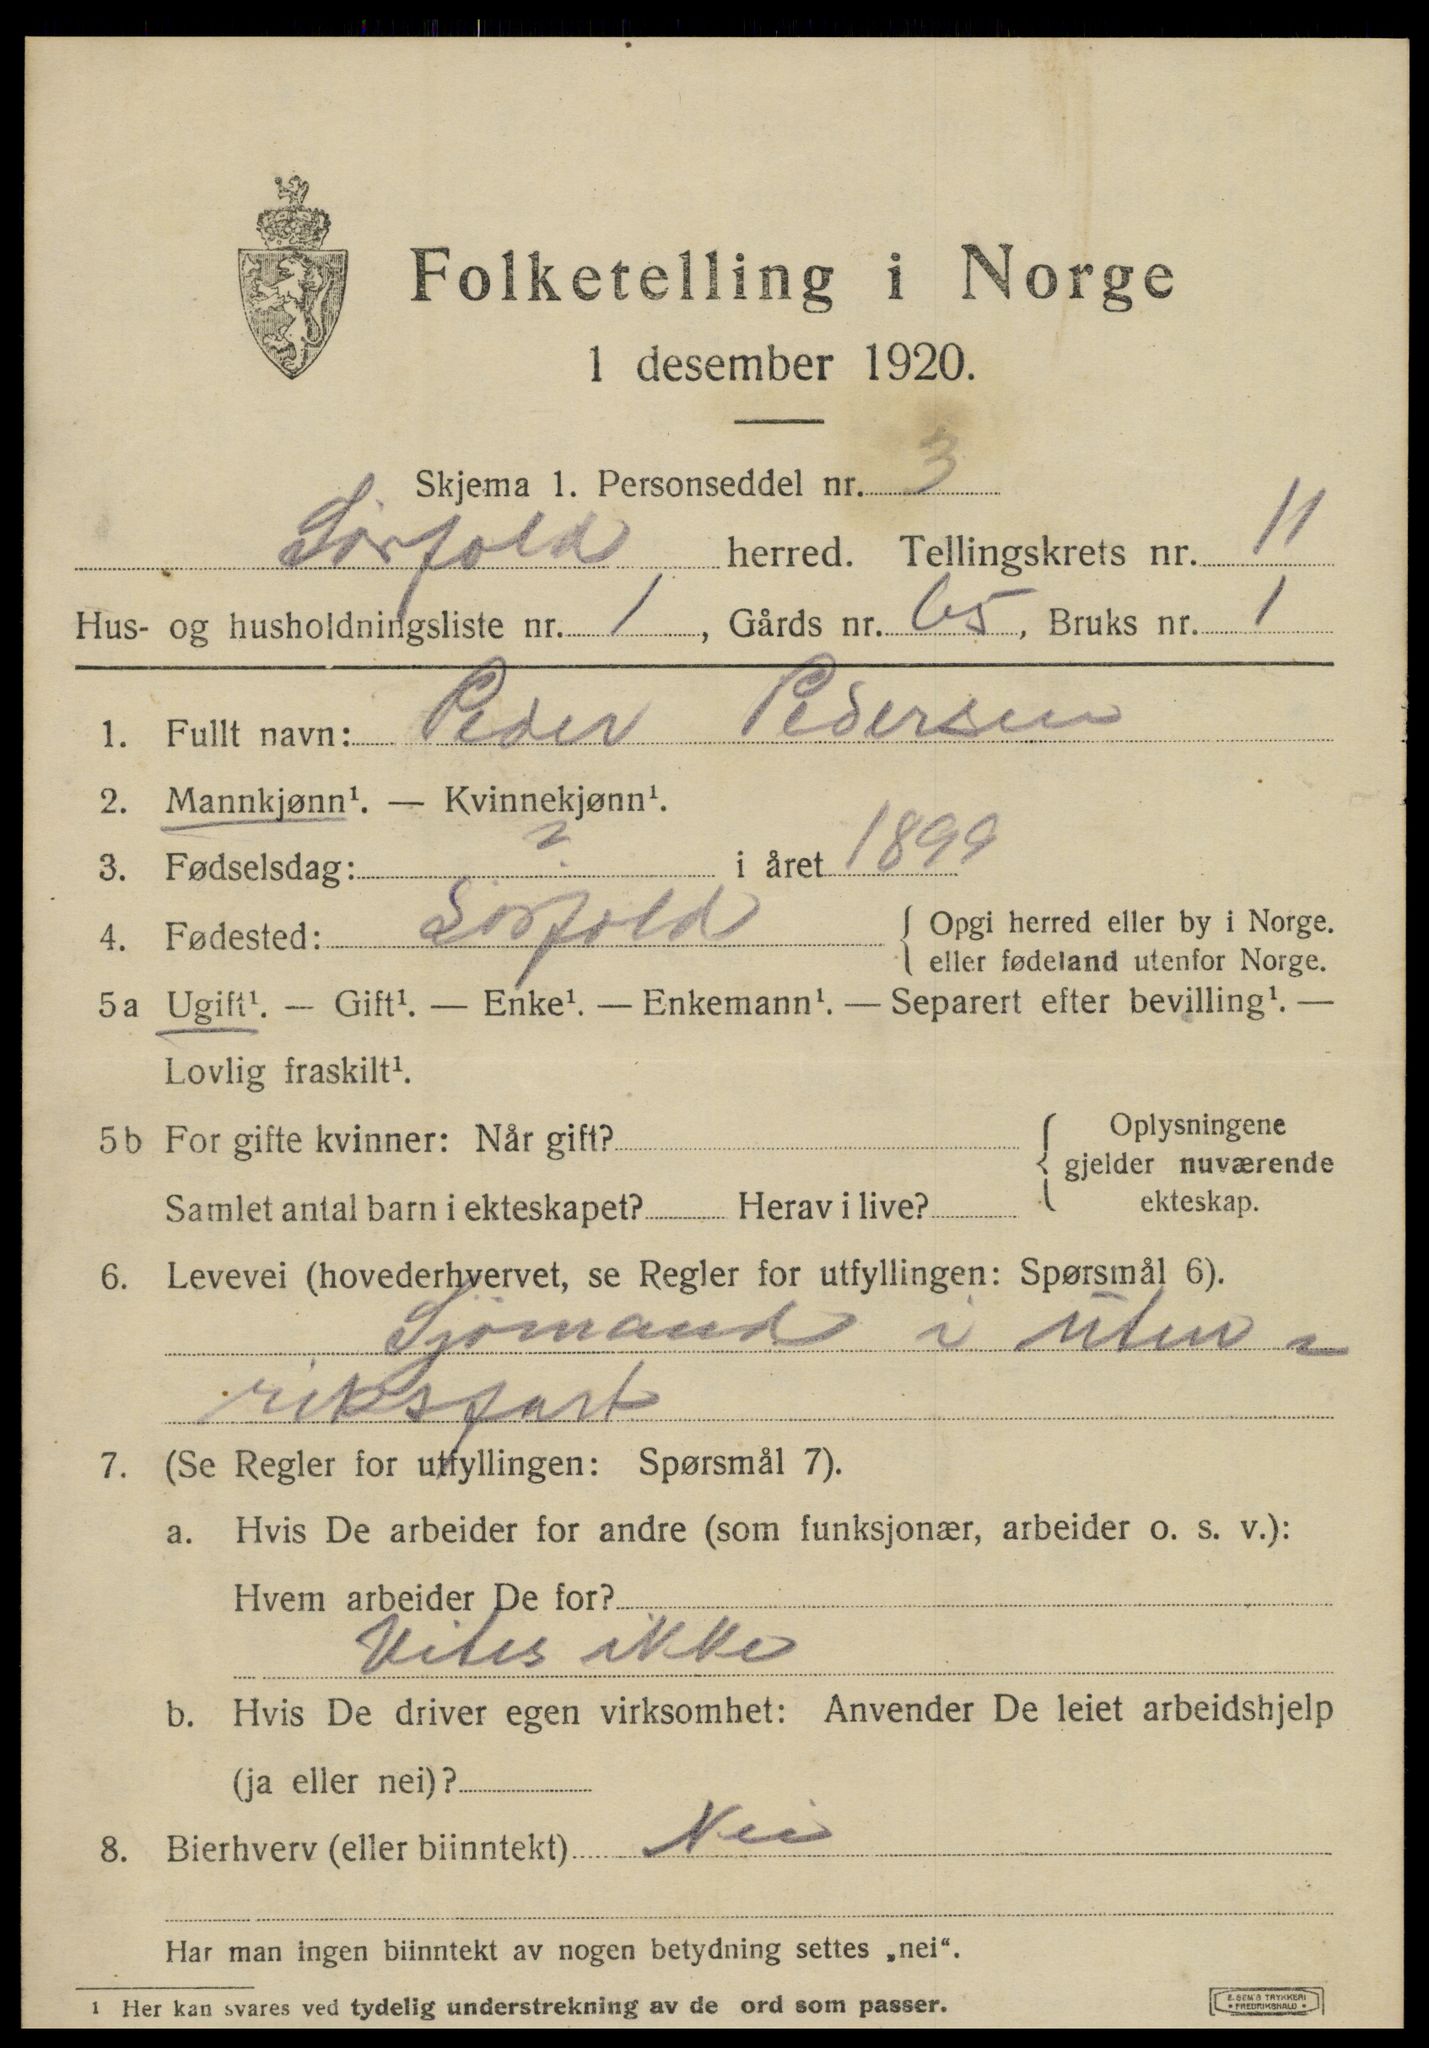 Folketelling i Norge
1 desember 1920.
Skjema 1. Personseddel nr. 3
Sørfold herred. Tellingskrets nr. 11
Hus- og husholdningsliste nr. 1, Gårds nr. 65, Bruks nr. 1
1. Fullt navn: Peder Pedersen
2. Mannkjønn¹. — Kvinnekjønn¹.
3. Fødselsdag: ? i året 1899
4. Fødested: Sørfold { Opgi herred eller by i Norge.
eller fødeland utenfor Norge.
5a Ugift¹. — Gift¹. — Enke¹. — Enkemann¹. — Separert efter bevilling¹. —
Lovlig fraskilt¹.
5b For gifte kvinner: Når gift? { Oplysningene
gjelder nuværende
Samlet antal barn i ekteskapet? Herav i live? ekteskap.
6. Levevei (hovederhvervet, se Regler for utfyllingen: Spørsmål 6).
Sjømand i uten-
riksfart
7. (Se Regler for utfyllingen: Spørsmål 7).
a. Hvis De arbeider for andre (som funksjonær, arbeider o. s. v.):
Hvem arbeider De for?
Vites ikke
b. Hvis De driver egen virksomhet: Anvender De leiet arbeidshjelp
(ja eller nei)?
8. Bierhverv (eller biinntekt) Nei
Har man ingen biinntekt av nogen betydning settes „nei“.
1 Her kan svares ved tydelig understrekning av de ord som passer.
E. SEM'S TRYKKERI
FREDRIKSHALD